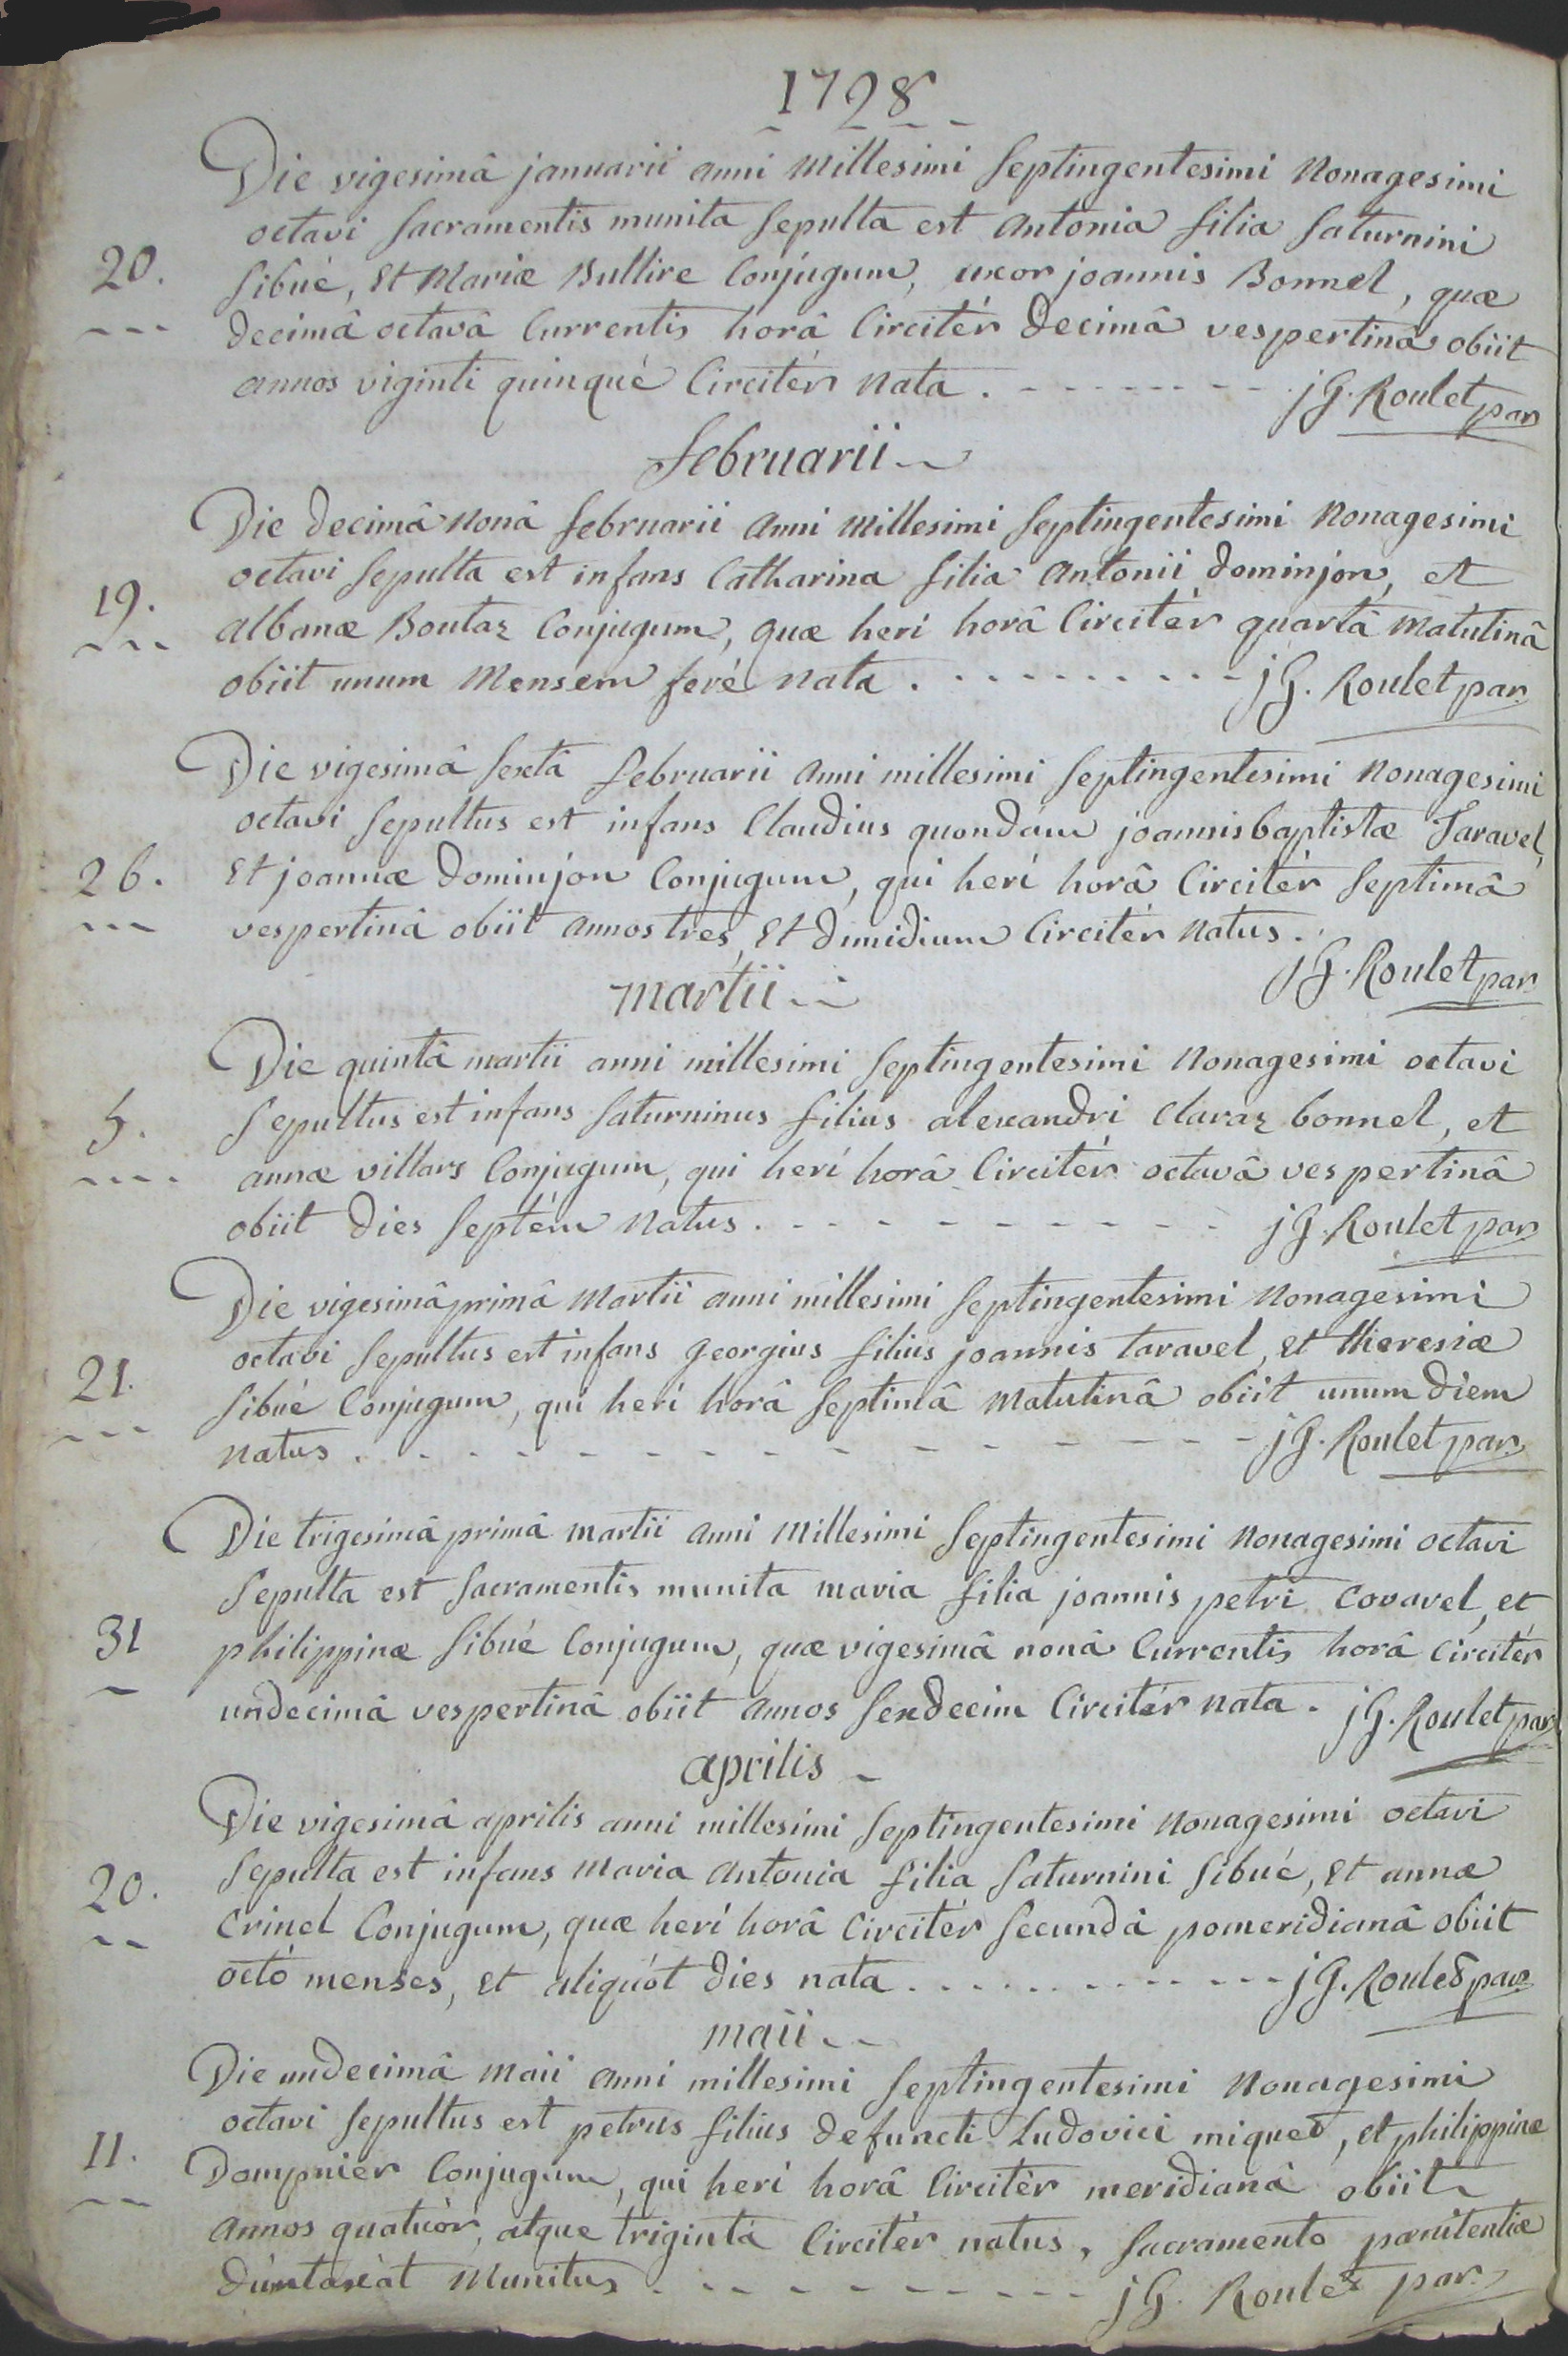 1798
Die vigesimâ januarii anni Millesimi Septingentesimi Nonagesimi
octavi Sacramentis munita Sepulta est Antonia filia Saturnini
20. Sibué, Et Mariæ Bullire Conjugum, uxor joannis Bonnel, quæ
decimâ octavâ Currentis horâ Circitér decimâ vespertinâ obiit
annos viginti quinqué Circitér Nata. jG. Roulet par
februarii
Die decimâ nonâ februarii anni Millesimi Septingentesimi Nonagesimi
octavi Sepulta est infans Catharina filia Antonii dominjon, et
19. albanæ Boutaz Conjugum, quæ heri horâ Circitér quartâ Matutinâ
obiit unum Mensem feré Nata. jG. Roulet par.
Die vigesimâ Sextâ februarii anni millesimi Septingentesimi Nonagesimi
octavi Sepultus est infans Claudius quondám joannisbaptistæ Taravel,
26. Et joannæ dominjon Conjugum, qui herí horâ Circitér Septimâ
vespertinâ obiit annos tres, Et dimidium Circitér Natus.
jG. Roulet par
martii
Die quintâ martii anni millesimi Septingentesimi Nonagesimi octavi
5. Sepultus est infans Saturninus filius alexandri claraz bonnel, et
annæ villars Conjugum, qui herí horâ Circitér octavâ vespertinâ
obiit dies Septém Natus. jG. Roulet par
Die vigesimâ primâ Martii anni millesimi Septingentesimi Nonagesimi
octavi Sepultus est infans georgius filius joannis taravel, et theresiæ
21. Sibué Conjugum, qui herí horâ Septimâ Matutinâ obiit unum diem
natus. jG. Roulet par
Die trigesimâ primâ martii anni Millesimi Septingentesimi Nonagesimi octavi
Sepulta est Sacramentis munita maria filia joannis petri covarel, et
31 philippinæ Sibué Conjugum, quæ vigesimâ nonâ Currentis horâ circitér
undecimâ vespertinâ obiit annos Sexdecim Circitér nata. jG. Roulet par
aprilis
Die vigesimâ aprilis anni millesimi Septingentesimi Nonagesimi octavi
20. Sepulta est infans maria Antonia filia Saturnini Sibué, Et annæ
crinel Conjugum, quæ herí horâ circitér Secundâ pomeridianâ obiit
octó menses, Et aliquót dies nata. jG. Roulet par
maii
Die undecimâ Maii anni millesimi Septingentesimi Nonagesimi
octavi Sepultus est petrus filius defuncti Ludovici miquet, et philippinæ
11. Dompnier Conjugum, qui herí horâ Circitér meridianâ obiit
annos quatuór, atque trigintá Circitér natus, Sacramento pænitentiæ
dúntaxát Munitus jG. Roulet par.